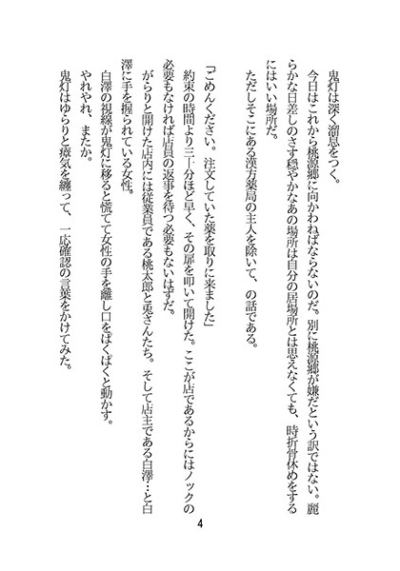 鬼灯は深く溜息をつく。
今日はこれから桃源郷に向かわねばならないのだ。別に桃源郷が嫌だという訳ではない。麗
らかな日差しのさす穏やかなあの場所は自分の居場所とは思えなくても、時折骨休めをする
にはいい場所だ。
ただしそこにある漢方薬局の主人を除いて、の話である。
「ごめんください。注文していた薬を取りに来ました」
約束の時間より三十分ほど早く、その扉を叩いて開けた。ここが店であるからにはノックの
必要もなければ店員の返事を待つ必要もないはずだ。
がらりと開けた店内には従業員である桃太郎と兎さんたち。そして店主である白澤…と白
澤に手を握られている女性。
白澤の視線が鬼灯に移ると慌てて女性の手を離し口をぱくぱくと動かす。
やれやれ、またか。
鬼灯はゆらりと瘴気を纏って、一応確認の言葉をかけてみた。
4